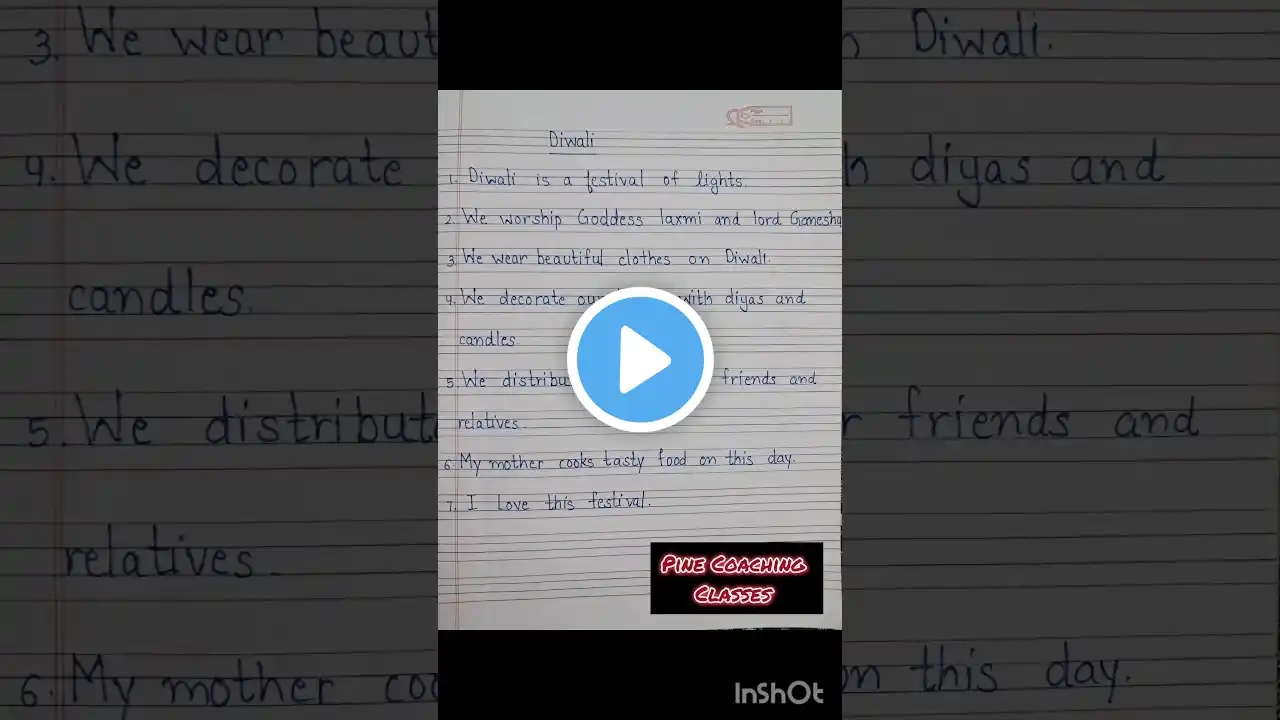 Diwali
1. Diwali is a festival of lights.
2. We worship Goddess laxmi and lord Ganesha
3. We wear beautiful clothes on Diwali.
4. We decorate our with diyas and
candles.
5. We distribu friends and
relatives.
6. My mother cooks tasty food on this day.
7. I Love this festival.
PINE COACHING
CLASSES
InShOt